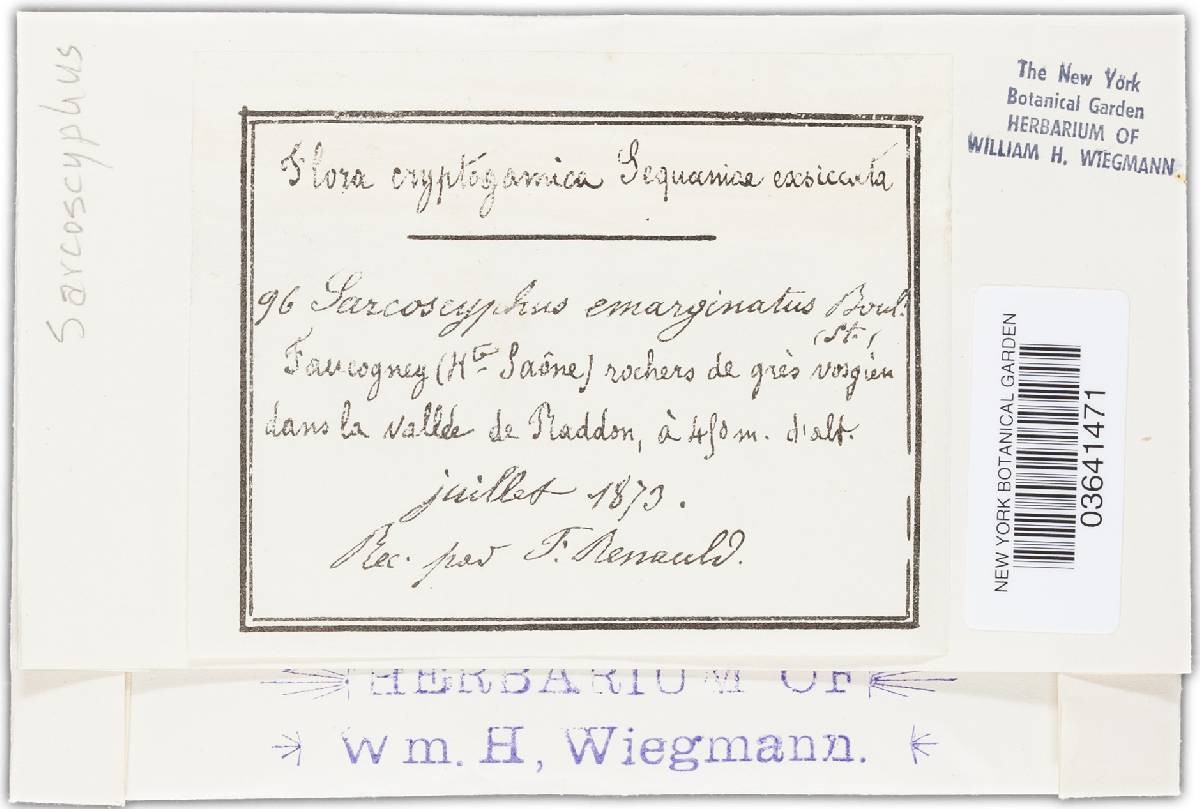 Sarcoscyphus
The New York
Botanical Garden
HERBARIUM OF
WILLIAM H. WIEGMANN
Flora cryptogamica Sequaniae exsiccata
96 Sarcoscyphus emarginatus Boul.
(St.)
Faucogney (Hte Saône) rochers de grès vosgien
dans la vallée de Raddon, à 450 m. d'alt.
juillet 1873.
Rec. par F. Renauld.
NEW YORK BOTANICAL GARDEN
03641471
HERBARIUM OF
Wm. H, Wiegmann.